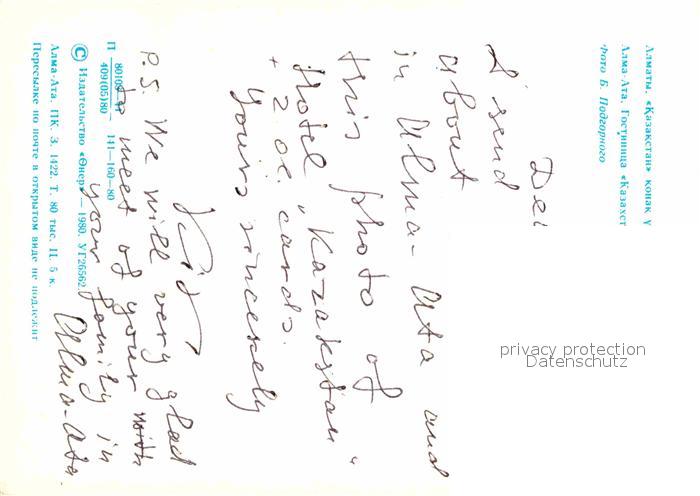 Алматы. «Қазақстан» қонақ ү
Алма-Ата. Гостиница «Казахст
Фото Б. Подгорного
Dei
I send
about
in Alma-Ata and
this photo of
Hotel „Kazakstan“
+ 2 oc. cards.
Yours sincerely
P.S. We will very glad
to meet of your with
your family in
Alma-Ata
П 80109
409(05)80 141—160—80
© Издательство «Өнер» — 1980. УГ26562.
Алма-Ата. ПК. З. 1422. Т. 80 тыс. Ц. 5 к.
Пересылке по почте в открытом виде не подлежит
privacy protection
Datenschutz